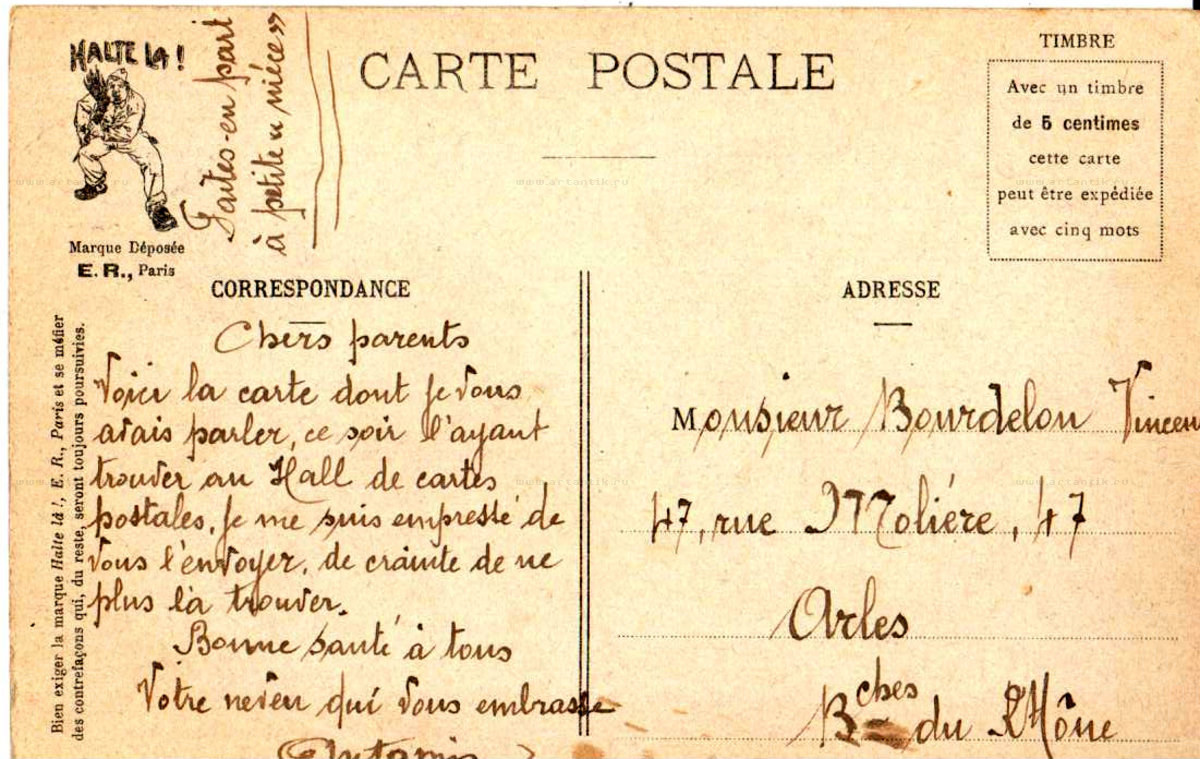 HALTE LÀ !
Marque Déposée
E. R., Paris
Faites-en part
à petite « nièce »
CARTE POSTALE
TIMBRE
Avec un timbre
de 5 centimes
cette carte
peut être expédiée
avec cinq mots
CORRESPONDANCE
Chers parents
Voici la carte dont je vous
avais parler, ce soir l'ayant
trouver au Hall de cartes
postales, je me suis empressé de
vous l'envoyer, de crainte de ne
plus la trouver.
Bonne santé à tous
Votre neveu qui vous embrasse
Bien exiger la marque Halte là !, E. R., Paris et se méfier
des contrefaçons qui, du reste, seront toujours poursuivies.
ADRESSE
Monsieur Bourdelon Vincen
47, rue Moliére, 47
Arles
Bches du Rhône
www.artantik.ru